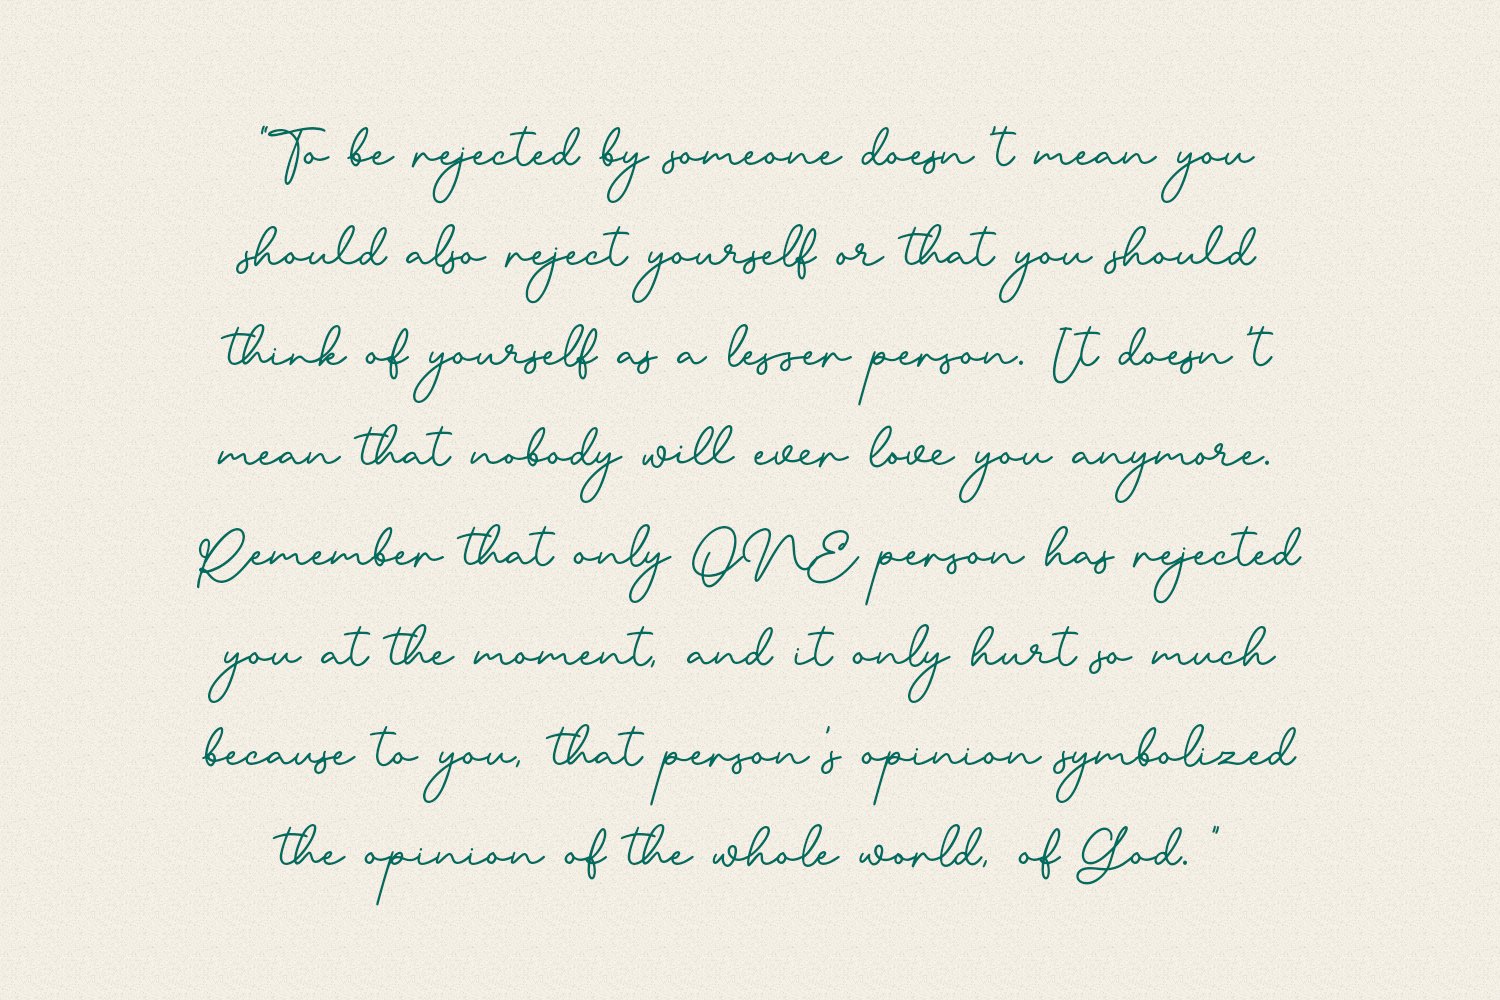 "To be rejected by someone doesn't mean you
should also reject yourself or that you should
think of yourself as a lesser person. It doesn't
mean that nobody will ever love you anymore.
Remember that only ONE person has rejected
you at the moment, and it only hurt so much
because to you, that person's opinion symbolized
the opinion of the whole world, of God."